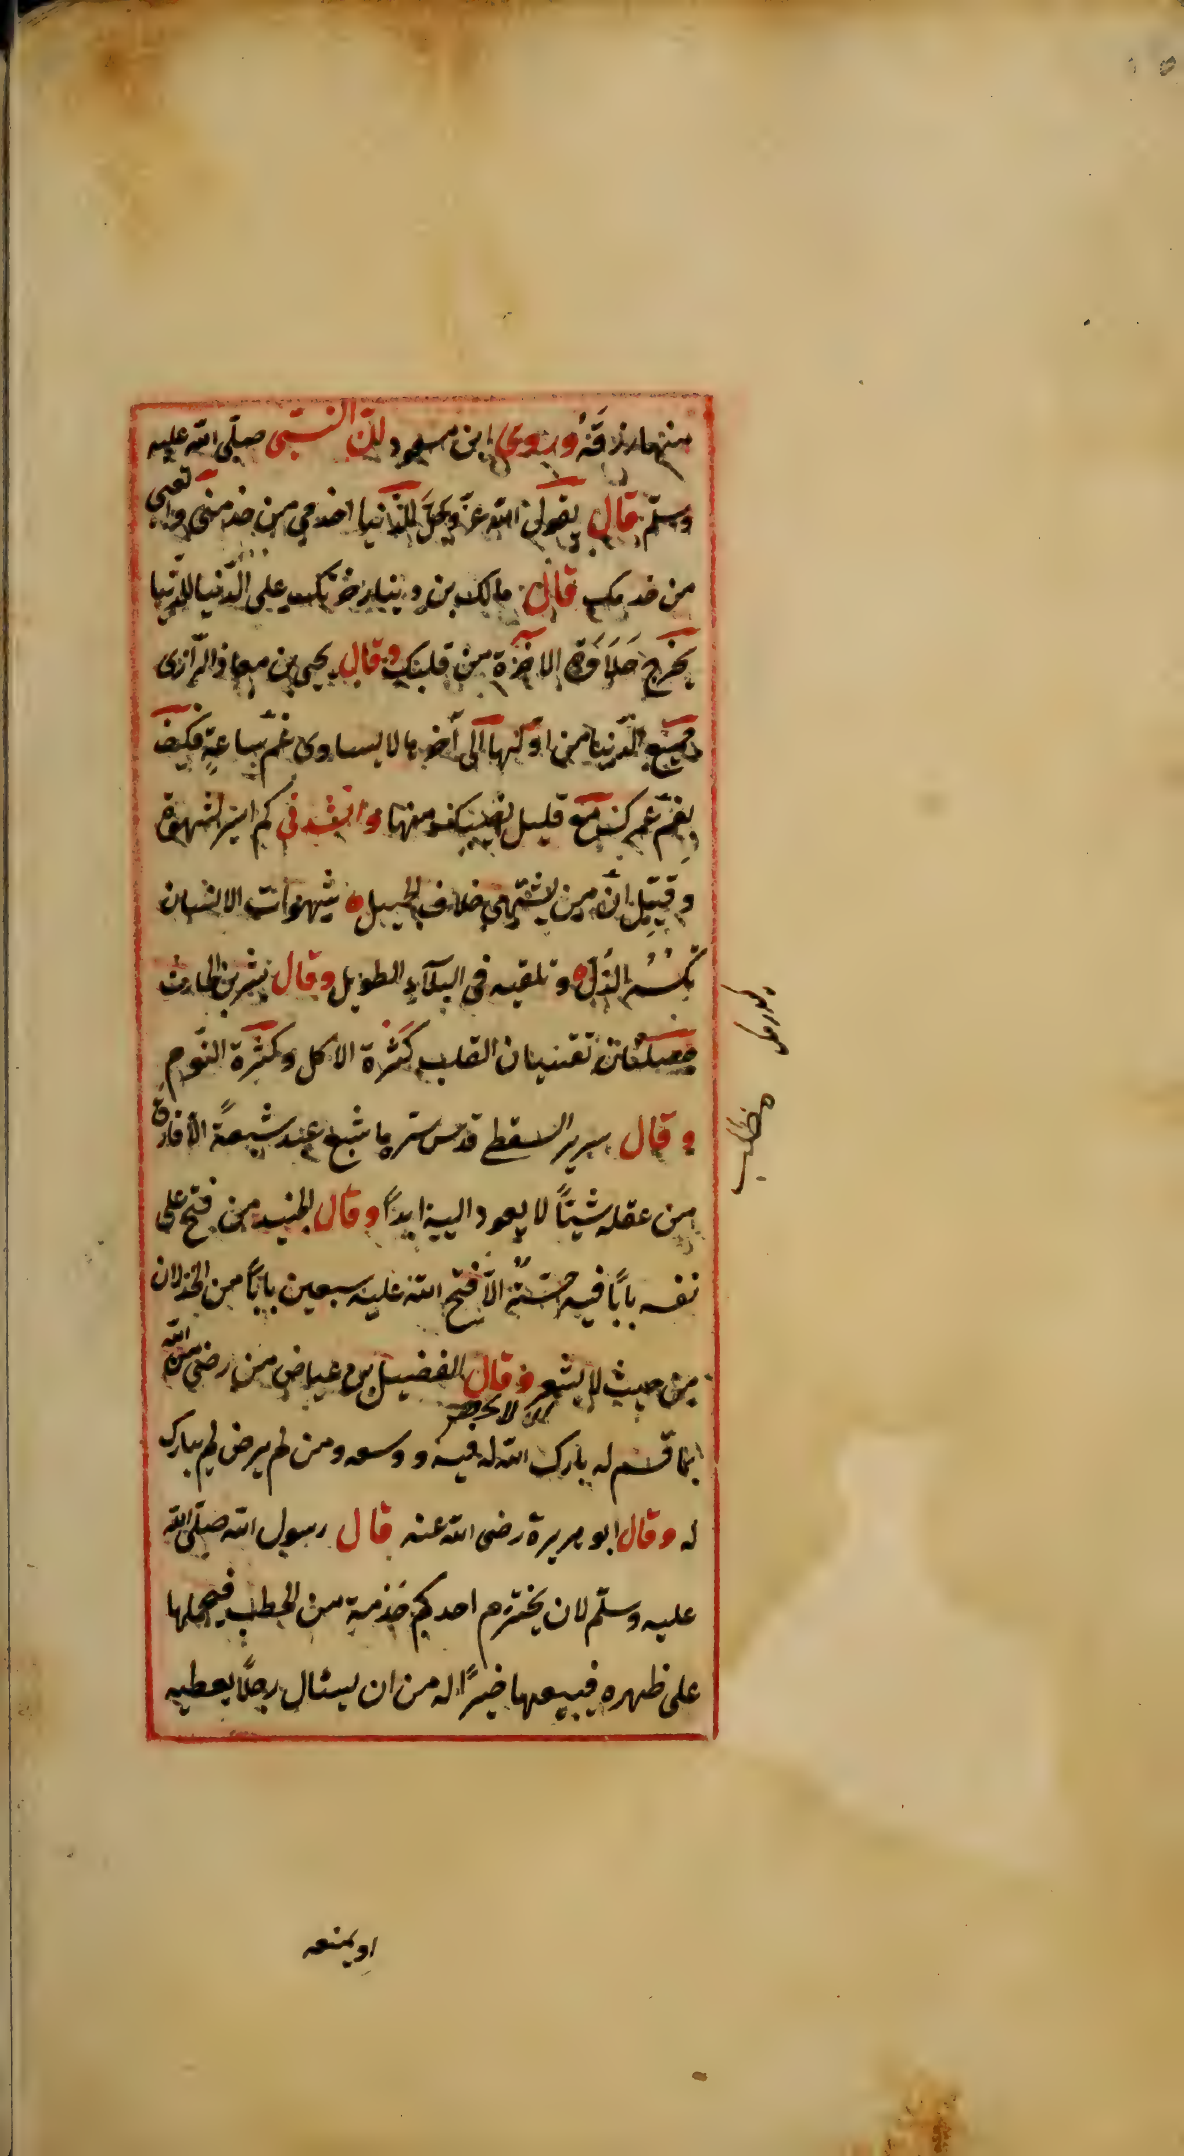 منها رزقهُ وروى ابن مسعود انّ النّبى صلّى الله عليه
وسلّم قال يقول الله عزّ وجلّ للدّنيا اخدمي من خدمنى واتعبى
من خدمك قال مالك بن دينار على الدّنيا للدّنيا
يخرج حَلَاوَة الاخرة من قلبك وقال يحيى بن معاذ الرّازى
جميع الدّنيا من اوّلها الى أخرها لا يساوى غم ساعةٍ فكيف
بغمّ عمرك مع قليل نصيبك منها وانشد فى كم اسير لشهوة
وقتيل انّ من يشتهي خلاف الجميل ه شهوات الانسان
الذُلّ ه وتلقيه فى البلآء الطويل وقال بشر بن الحارث
خصلتان تقسيان القلب كثرة الاكل وكثرة النّوم
وقال سرير السقطى قدس سره ما شبع عبد شبعةً الّا فارق
من عقله شيئاً لا يعود اليه ابداً وقال الجنيد من فتح على
نفسه باباً فيه الّا فتح الله عليه سبعين باباً من الخذلان
من حيث لا يشعر وقال الفضيل بن عياض من رضى من الله
بما قسم له بارك الله له فيه ووسعه ومن لم يرض لم يبارك
له وقال ابو هريرة رضى الله عنه قال رسول الله صلّى الله
عليه وسلّم لان يحتزم احدكم حزمة من الحطب فيحملها
على ظهره فيبيعها خيرًا له من ان يسئال رجلًا يعطيه
مطلب
او يمنعه